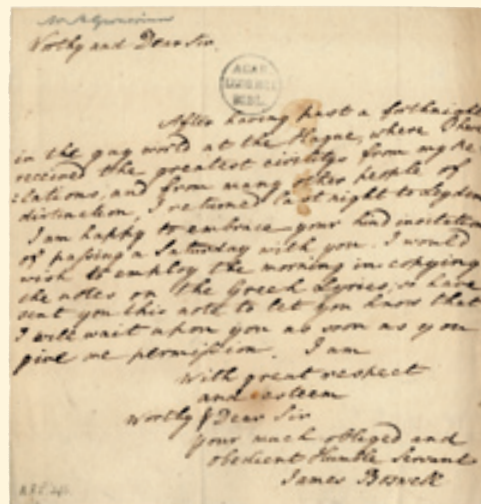 Worthy and Dear Sir.
ACAD.
LUGD.
BIBL.
After having past a forthnight
in the gay world at the Hague, where I have
received the greatest civilitys from my Re
lations, and from many other people of
distinction, I returned last night to Leyden
I am happy to embrace your kind invitation
of passing a Saturday with you. I would
wish to employ the morning in copying
the notes on the Greek Lyrics, so have
sent you this note to let you know that
I will wait upon you as soon as you
give me permission. I am
With great respect
and esteem
Worthy & Dear Sir
your much obliged and
obedient Humble Servant
James Boswell